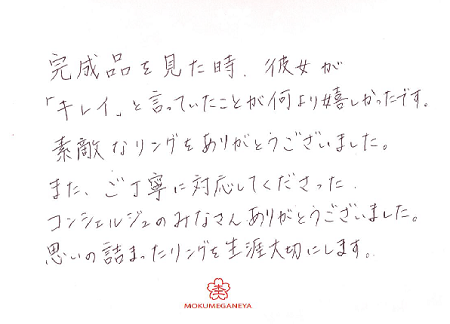 完成品を見た時、彼女が
「キレイ」と言っていたことが何より嬉しかったです。
素敵なリングをありがとうございました。
また、ご丁寧に対応してくださった、
コンシェルジュのみなさんありがとうございました。
思いの詰まったリングを生涯大切にします。
MOKUMEGANEYA